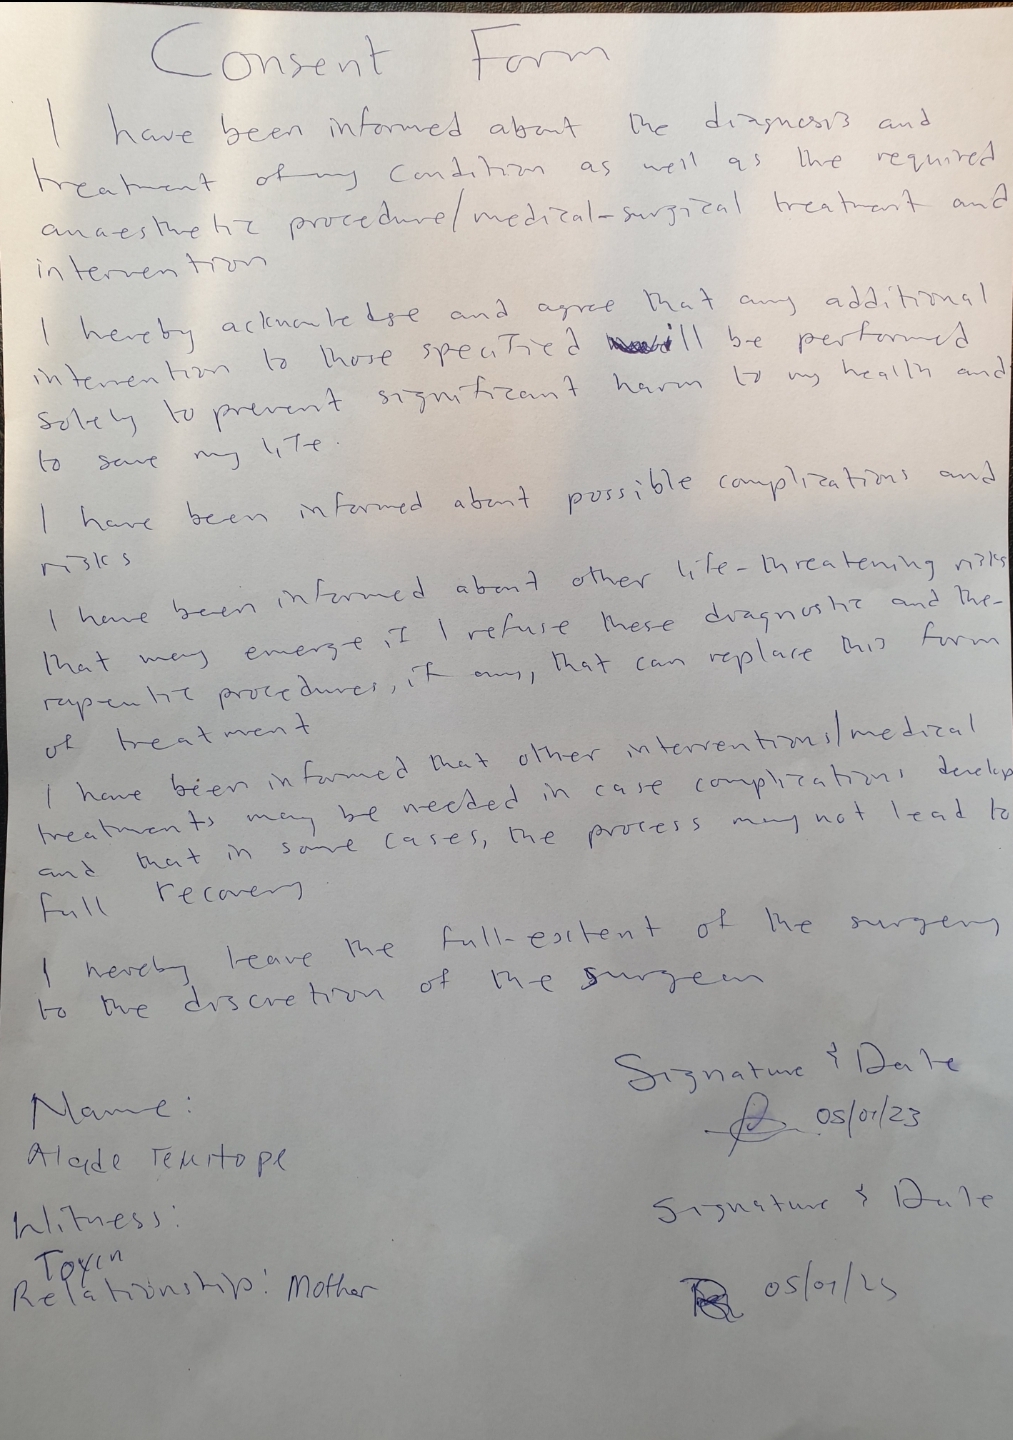 Consent Form
I have been informed about the diagnosis and
treatment of my condition as well as the required
anaesthetic procedure/medical-surgical treatment and
intervention
I hereby acknowledge and agree that any additional
intervention to those specified will be performed
solely to prevent significant harm to my health and
to save my life.
I have been informed about possible complications and
risks
I have been informed about other life-threatening risks
that may emerge if I refuse these diagnostic and the-
rapeutic procedures, if any, that can replace this form
of treatment
I have been informed that other interventions/medical
treatments may be needed in case complications develop
and that in some cases, the process may not lead to
full recovery
I hereby leave the full-extent of the surgery
to the discretion of the surgeon
Signature & Date
Name:
05/01/23
Alade Temitope
Signature & Date
Witness:
Toyin
Relationship: Mother
05/01/23